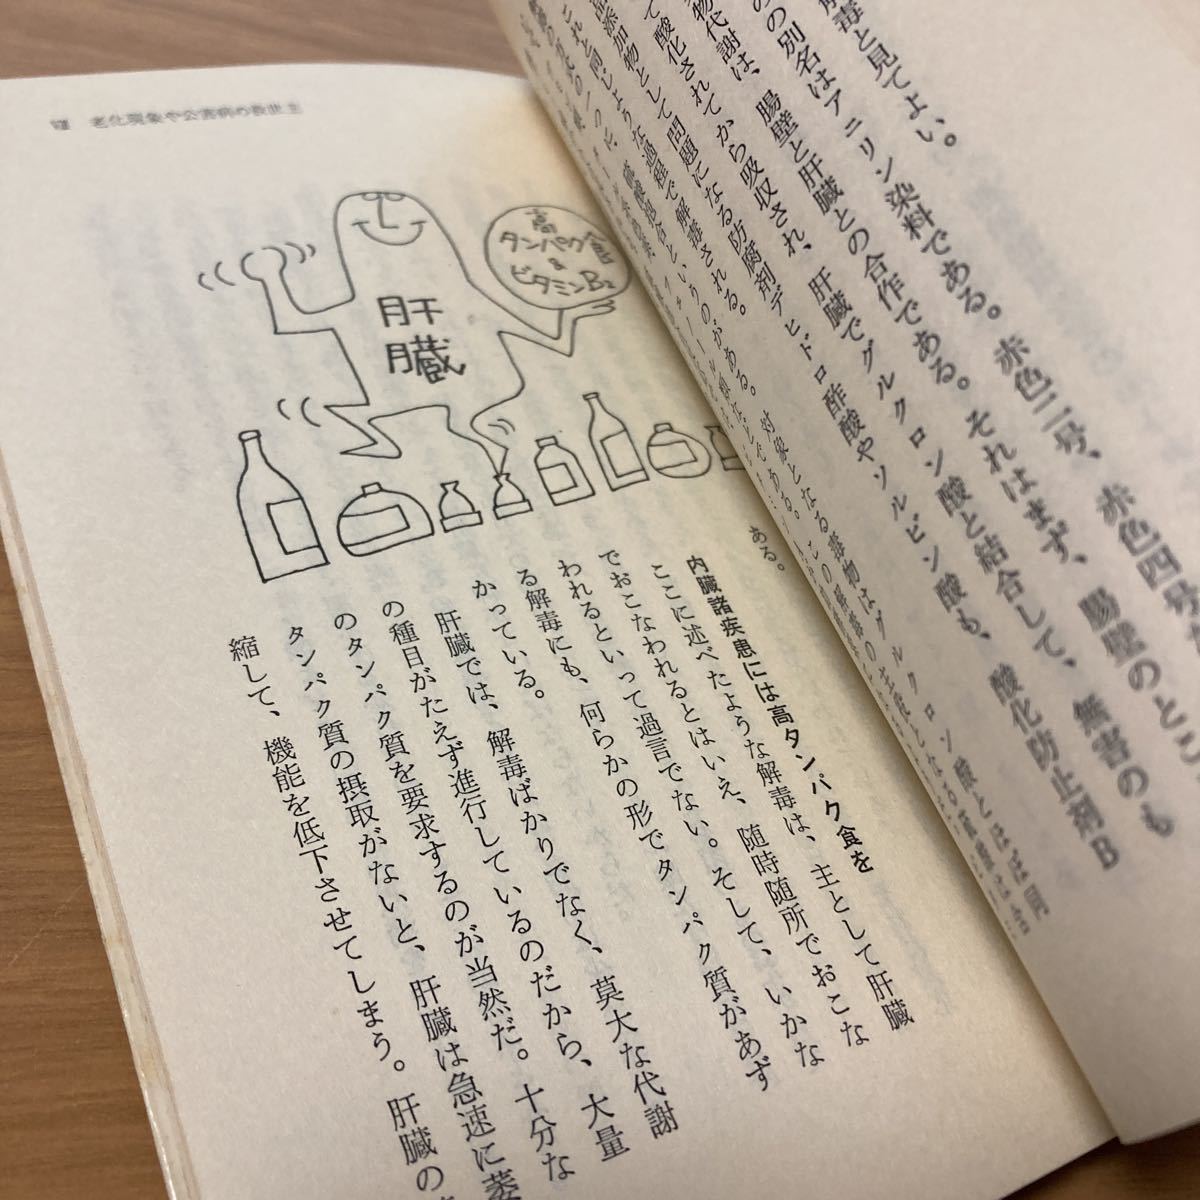 毒と見てよい。
の別名はアニリン染料である。赤色二号、赤色四号
物代謝は、腸壁と肝臓との合作である。それはまず、腸壁のとこ
て酸化されてから吸収され、肝臓でグルクロン酸と結合して、無害のも
添加物として問題になる防腐剤デヒドロ酢酸やソルビン酸も、酸化防止剤B
これと同じような過程で解毒される。
ある。
老化現象や公害病の救世主
高
タンパク食
&
ビタミンB₂
肝
臓
内臓諸疾患には高タンパク食を
ここに述べたような解毒は、主として肝臓
でおこなわれるとはいえ、随時随所でおこな
われるといって過言でない。そして、いかな
る解毒にも、何らかの形でタンパク質があず
かっている。
肝臓では、解毒ばかりでなく、莫大な代謝
の種目がたえず進行しているのだから、大量
のタンパク質を要求するのが当然だ。十分な
タンパク質の摂取がないと、肝臓は急速に萎
縮して、機能を低下させてしまう。肝臓の